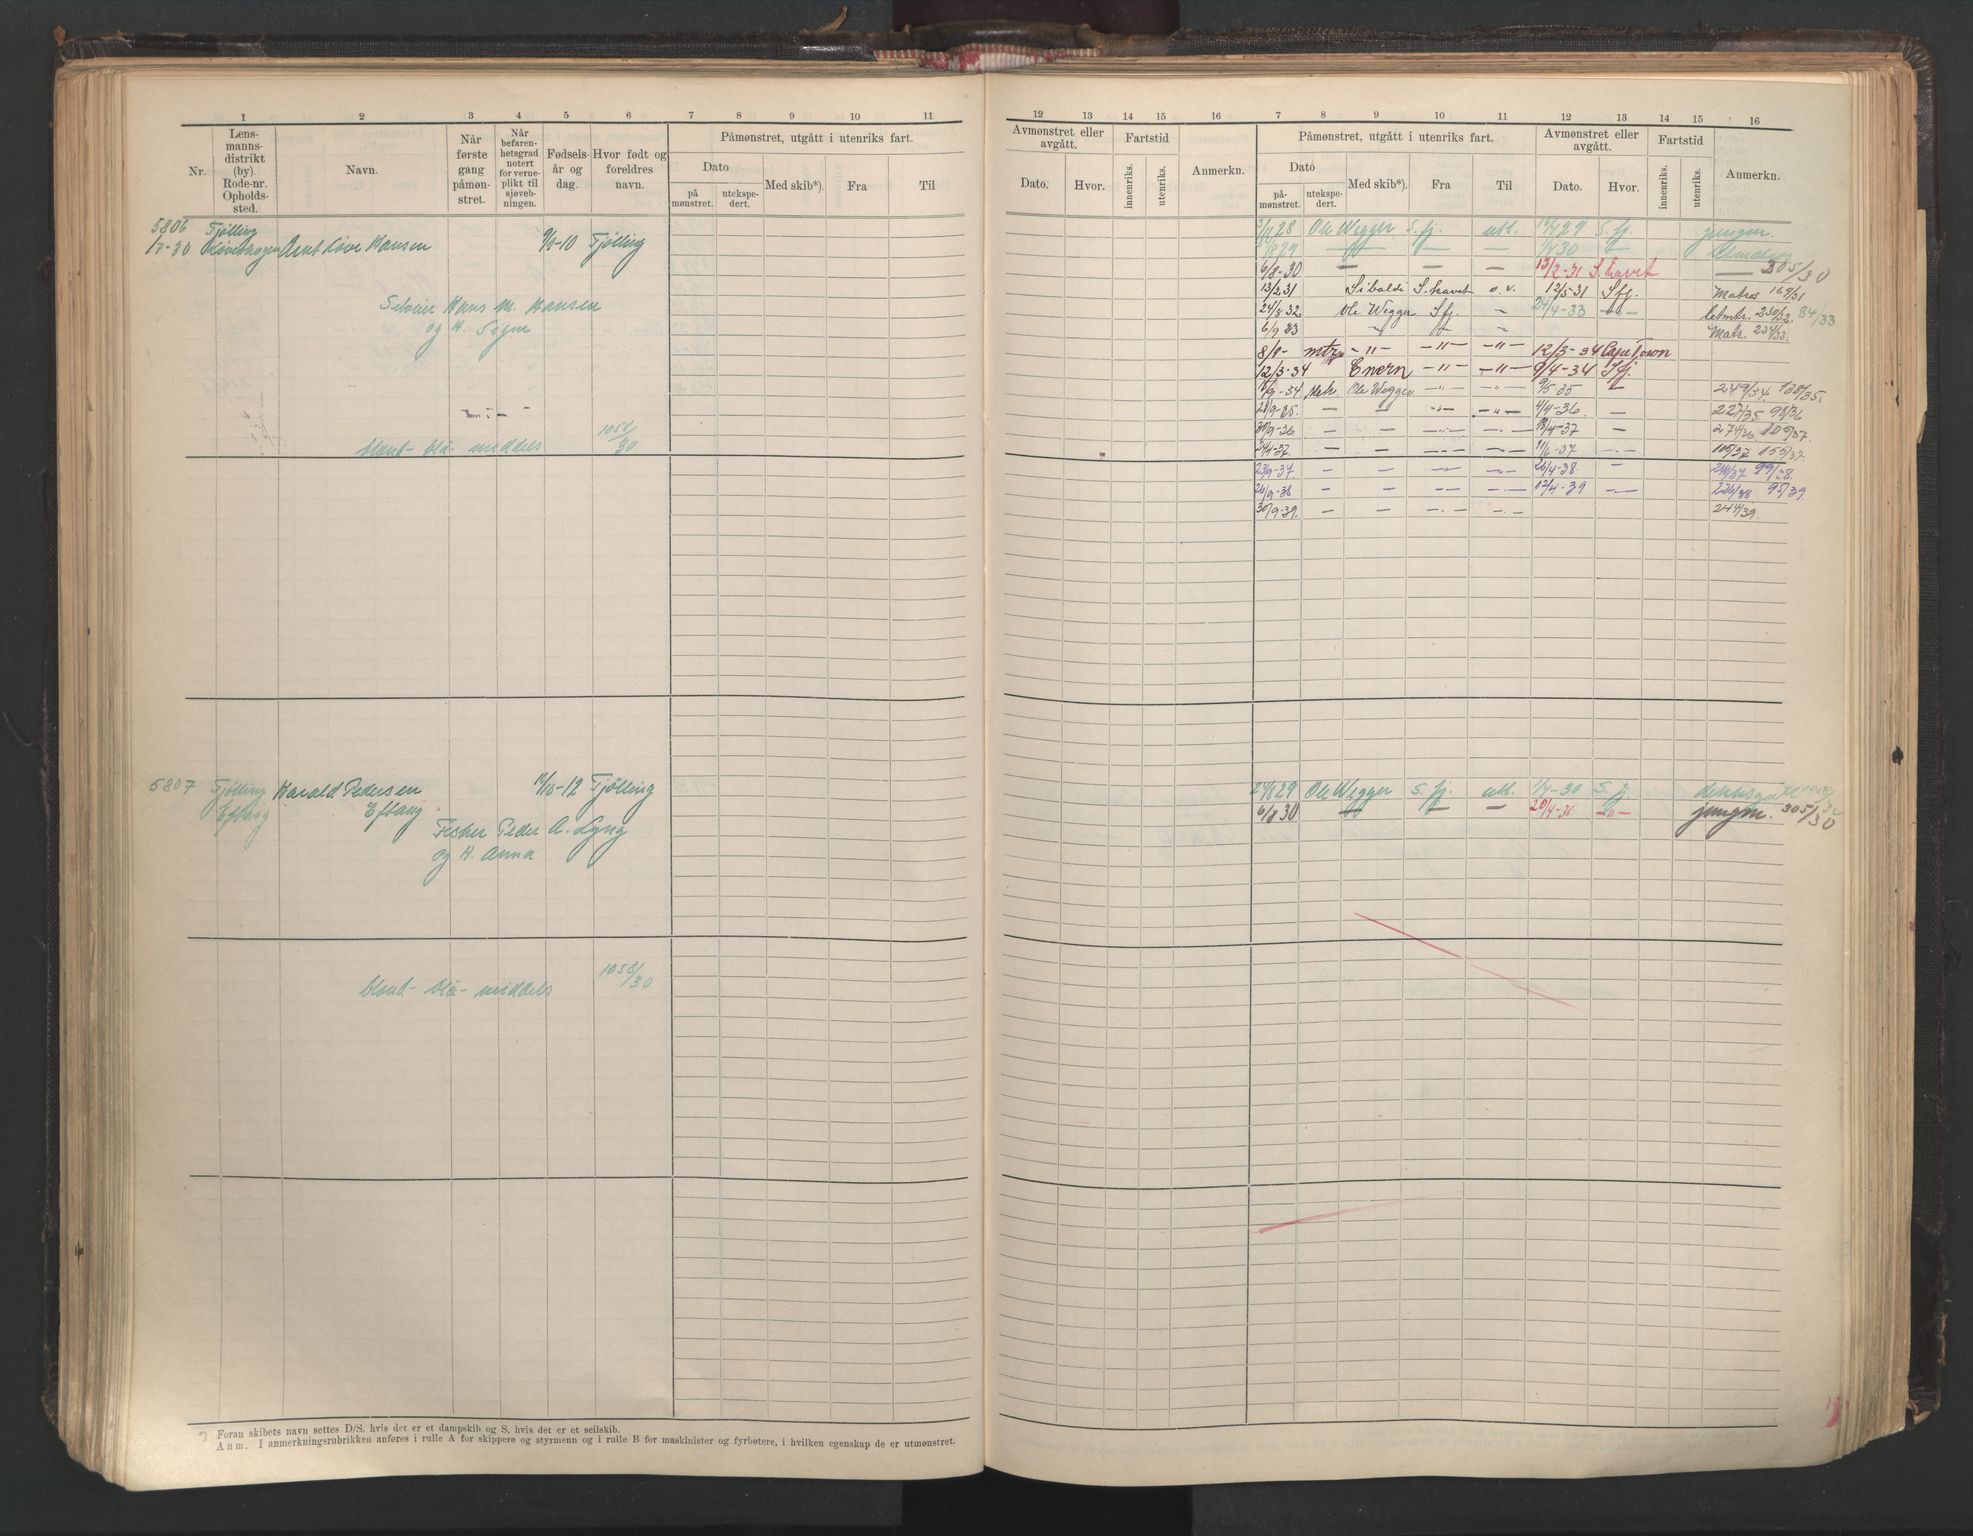 1 2 3 4 5 6 7 8 9 10 11
Nr. Lens-
manns-
distrikt
(by).
Rode-nr.
Opholds-
sted.
Navn.
Når
første
gang
påmøn-
stret.
Når
befaren-
hetsgrad
notert
for verne-
plikt til
sjøveb-
ningen.
Fødsels-
år og
dag.
Hvor født og
foreldres
navn.
Påmønstret, utgått i utenriks fart.
Dato
på
mønstret.
utekspe-
dert.
Med skib*).
Fra
Til
5806 Tjølling
17-30 Arnt Love Hansen 9/9-10 Tjølling
Selveier Hans M. Hansen
og H.
blond- blå- middels 1058/30
5807 Tjølling Harald Pedersen 14/10-12 Tjølling
Eftang Eftang
Fisker Peder A. Lyng
og H. Anna
blond- blå- middels 1058/30
*) Foran skibets navn settes D/S. hvis det er et dampskib og S. hvis det er et seilskib.
Anm. I anmerkningsrubrikken anføres i rulle A for skippere og styrmenn og i rulle B for maskinister og fyrbøtere, i hvilken egenskap de er utmønstret.
12 13 14 15 16 7 8 9 10 11 12 13 14 15 16
Avmønstret eller
avgått.
Dato. Hvor.
Fartstid
innenriks. utenriks.
Anmerkn.
Påmønstret, utgått i utenriks fart.
Dato
på
mønstret.
utekspe-
dert.
Med skib*).
Fra
Til
Avmønstret eller
avgått.
Dato. Hvor.
Fartstid
innenriks. utenriks.
Anmerkn.
28 Ole Wegger S.fj. utl. 29 S.fj. jungm.
24/8 29 — — — 1/4 30 — letmatros
6/8-30 — — — 13/2-31 S.havet — 305/30
13/2 31 Sibaldi S.havet o.v. 12/5-31 Sfj. Matros 169/31
24/8 32 Ole Wegger Sfj. — 24/4-33 — letmtr. 230/32. 84/33
6/9 33 " " — Matr. 234/33.
8/9- mtr — " — — " — — " — 12/3-34 Cape Town
12/3-34 Enern — " — — " — 9/4-34 Sfj.
9-34 Matr. Ole Wegger — " — — " — 9/5-35 — 249/34. 138/35.
9-35. — — — " — — " — 4/4-36. — 227/35 98/36
30/9-36. — — — — 18/4-37 — 274/36 105/37.
24/4-37. — — — — 11/6-37 — 105/37 155/37.
23/9-37. — — — — 26/4-38. — 210/37. 99/38.
26/9-38 — — — — 12/4-39 — 226/38. 95/39.
30/9-39. — — — — 244/39.
24/8 29 Ole Wegger S.fj. utl. 1/4-30 S.fj. dekksgutt
6/8 30 — — — 20/4-31 — " — jungm. 305/30